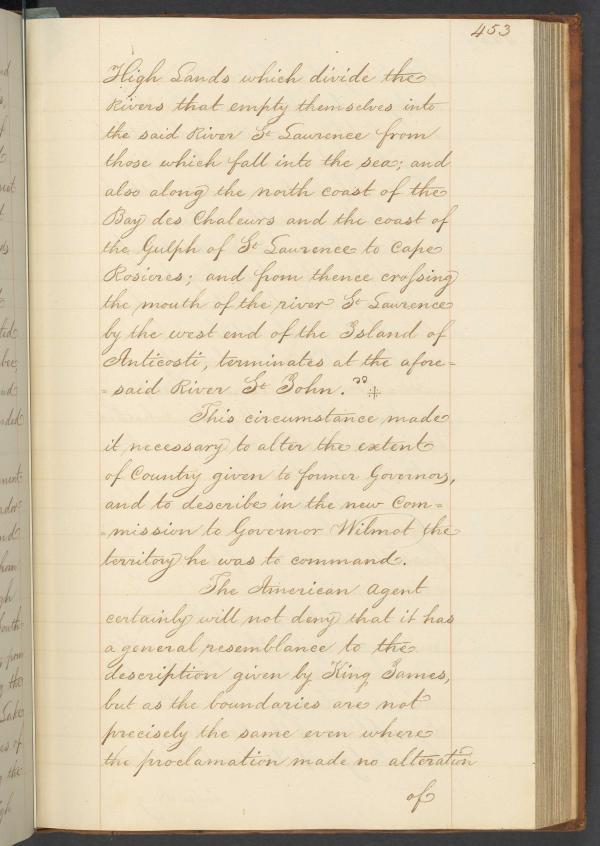 453
High Lands which divide the
Rivers that empty themselves into
the said River St Lawrence from
those which fall into the sea; and
also along the north coast of the
Bay des Chaleurs and the coast of
the Gulph of St Lawrence to Cape
Rosieres; and from thence crossing
the mouth of the river St Lawrence
by the west end of the Island of
Anticosti, terminates at the afore=
=said River St John." ‡
This circumstance made
it necessary to alter the extent
of Country given to former Governors,
and to describe in the new Com=
=mission to Governor Wilmot the
territory he was to command.
The American agent
certainly will not deny that it has
a general resemblance to the
description given by King James,
but as the boundaries are not
precisely the same even where
the proclamation made no alteration
of